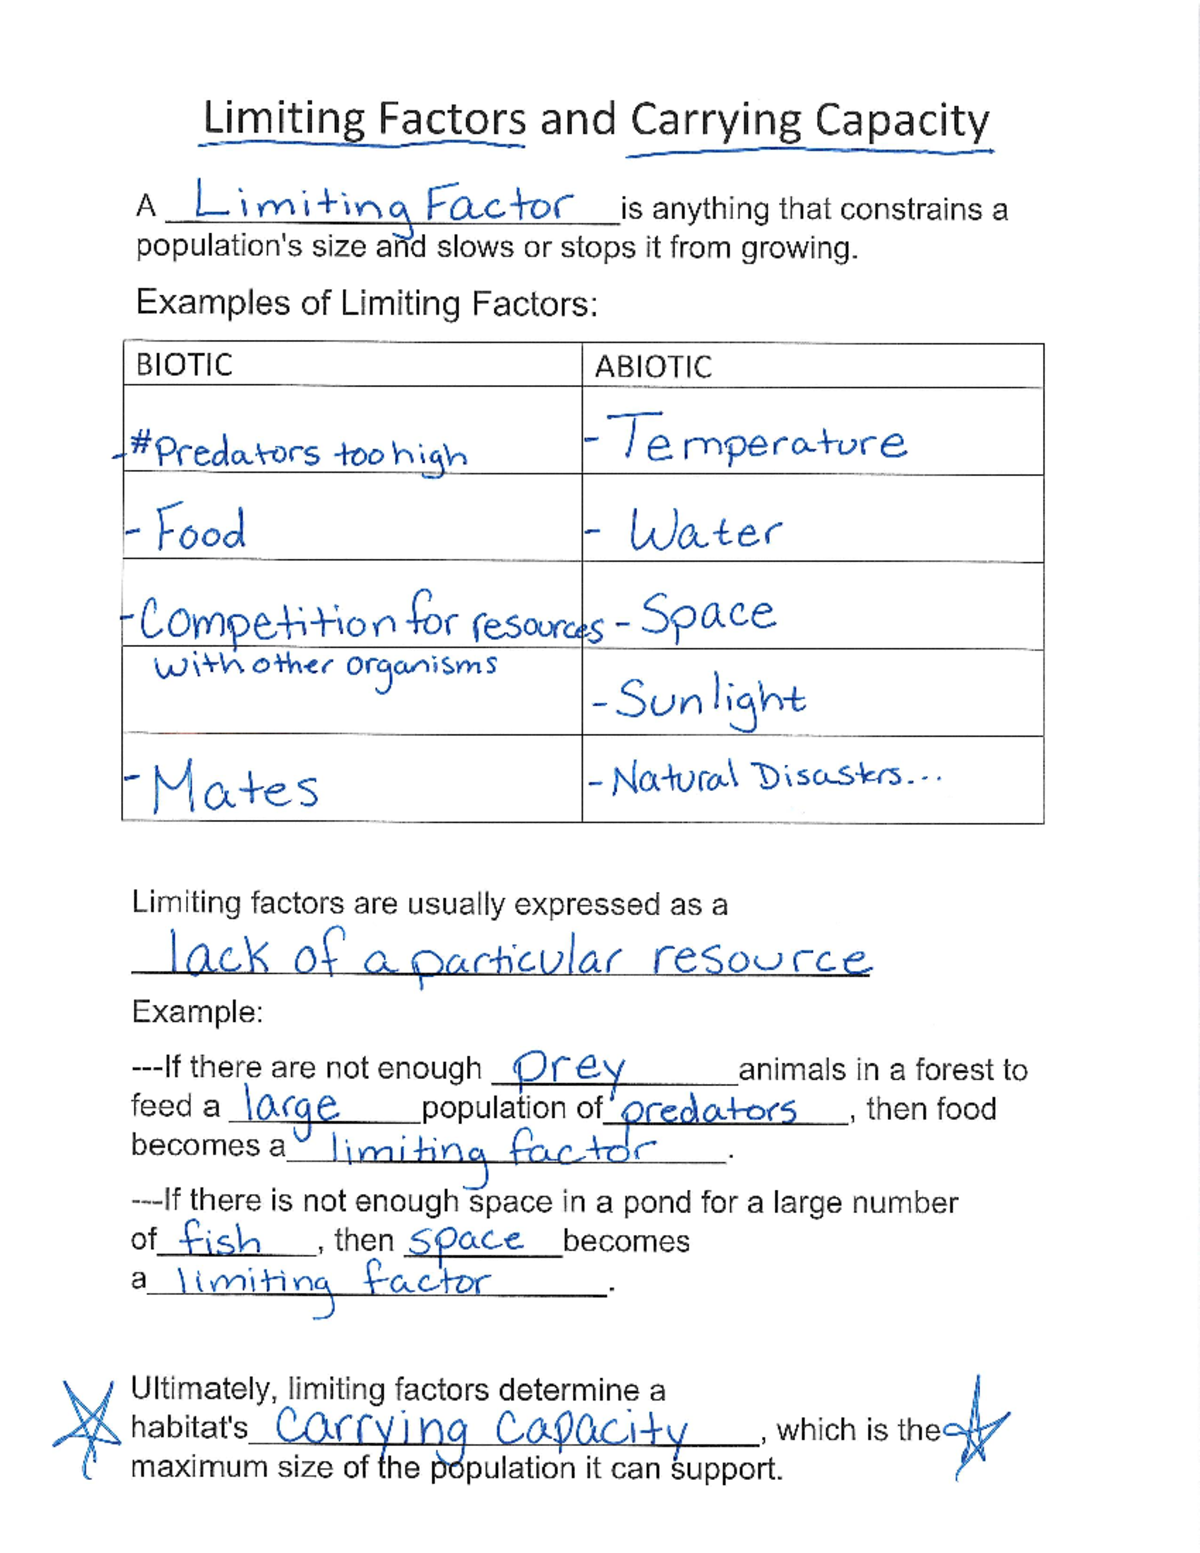 Limiting Factors and Carrying Capacity
A Limiting Factor is anything that constrains a
population's size and slows or stops it from growing.
Examples of Limiting Factors:
BIOTIC
ABIOTIC
-#Predators too high
- Temperature
- Food
- Water
-Competition for resources
- Space
with other organisms
- Sunlight
- Mates
- Natural Disasters...
Limiting factors are usually expressed as a
lack of a particular resource
Example:
---If there are not enough prey animals in a forest to
feed a large population of predators, then food
becomes a limiting factor.
---If there is not enough space in a pond for a large number
of fish, then space becomes
a limiting factor.
Ultimately, limiting factors determine a
habitat's carrying capacity, which is the
maximum size of the population it can support.